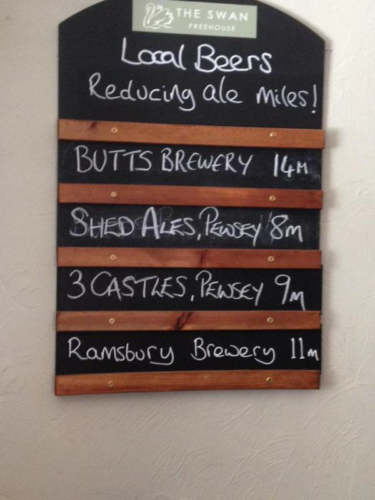 THE SWAN
FREEHOUSE
Local Beers
Reducing ale miles!
BUTTS BREWERY 14M
SHED ALES, PEWSEY 8m
3 CASTLES, PEWSEY 9m
Ramsbury Brewery 11m